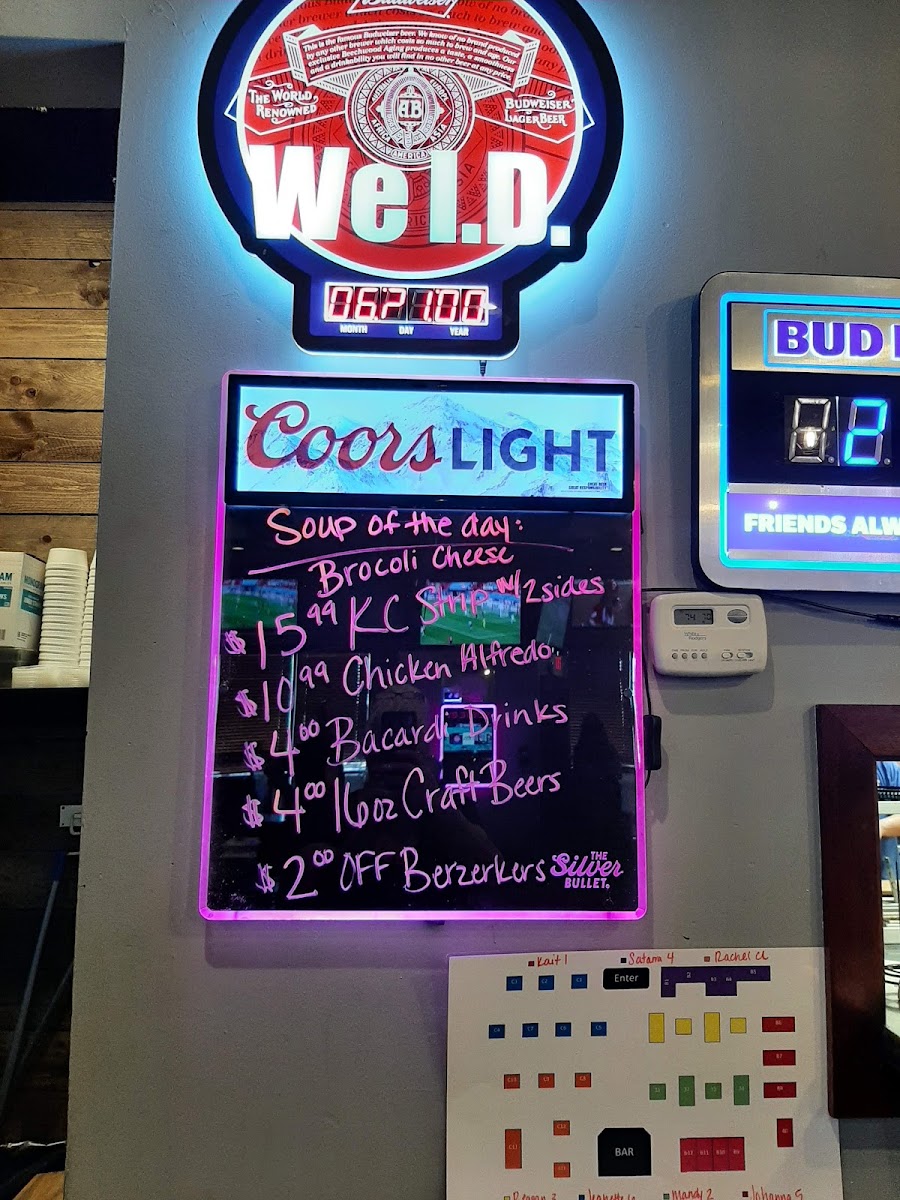 Budweiser
This is the famous Budweiser beer. We know of no brand produced
by any other brewer which costs so much to brew and age. Our
exclusive Beechwood Aging produces a taste, a smoothness
and a drinkability you will find in no other beer at any price.
THE WORLD
RENOWNED
BUDWEISER
LAGER BEER
AMERICA
We I.D.
MONTH DAY YEAR
BUD
2
FRIENDS ALW
Coors LIGHT
Soup of the day:
Brocoli Cheese
$15.99 KC Strip w/ 2 sides
$10.99 Chicken Alfredo
$4.00 Bacardi Drinks
$4.00 16oz Craft Beers
$2.00 OFF Berzerkers
THE
Silver
BULLET.
Kait 1
Satara 4
Rachel CL
Enter
BAR
Reagan 3
Jeanette 6
Mandy 2
Johanna 5